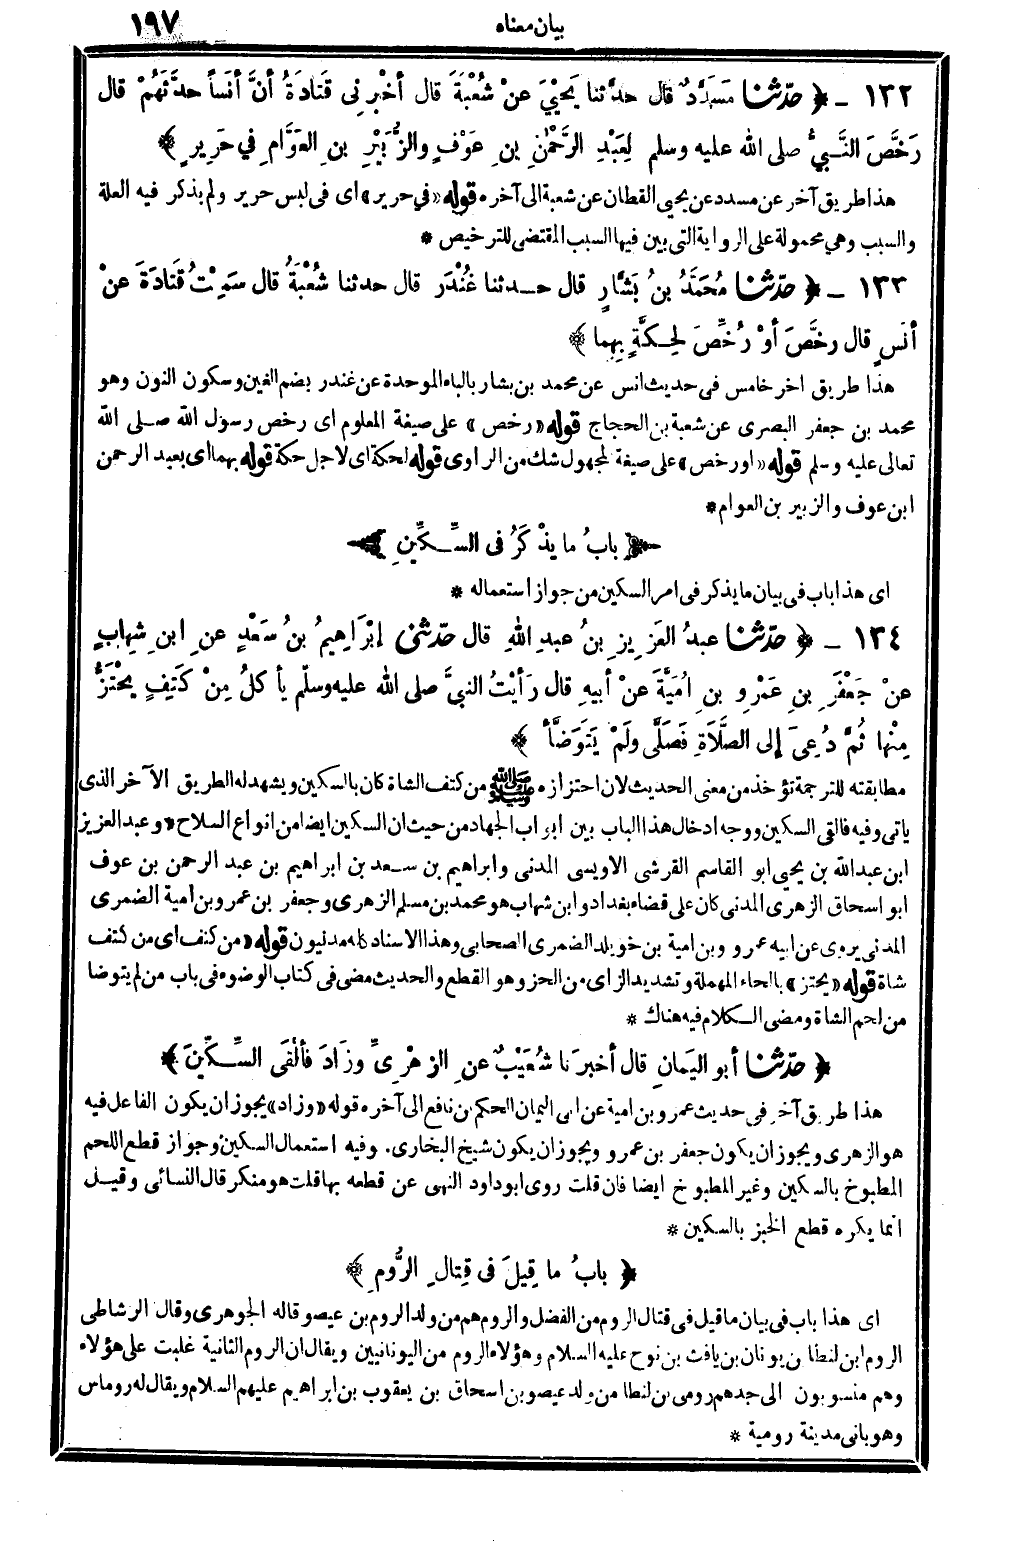 بيان معناه
١٩٧
١٣٢ ـ ﴿ حدّثنا مُسَدَّدٌ قال حدَّثنا يَحْيَى عنْ شُعْبَةَ قال أخْبرنِى قَتَادَةُ أنَّ أنَساً حدَّثَهُمْ قال
رَخَّصَ النَّبيُّ صلى الله عليه وسلم لِعَبْدِ الرَّحْمٰنِ بنِ عَوْفٍ والزُّبَيْرِ بنِ العَوَّامِ في حَرِيرٍ ﴾
هذا طريق آخر عن مسدد عن يحيى القطان عن شعبة الى آخره قوله «في حرير» اى فى لبس حرير ولم يذكر فيه العلة
والسبب وهي محمولة على الرواية التى بين فيها السبب المقتضى للترخيص *
١٣٣ ـ ﴿ حدّثنا مُحَمَّدُ بنُ بَشَّارٍ قال حدثنا غُنْدَر قال حدثنا شُعْبَةُ قال سَمِعْتُ قَتَادَةَ عنْ
أنَسٍ قال رخَّصَ أوْ رُخِّصَ لِحِكَّةٍ بِهِما ﴾
هذا طريق اخر خامس فى حديث انس عن محمد بن بشار بالباء الموحدة عن غندر بضم الغين وسكون النون وهو
محمد بن جعفر البصرى عن شعبة بن الحجاج قوله «رخص» على صيغة المعلوم اى رخص رسول الله صلى الله
تعالى عليه وسلم قوله «او رخص» على صيغة المجهول شك من الراوى قوله لحكة اى لاجل حكة قوله بهما اى بعبد الرحمن
ابن عوف والزبير بن العوام *
﴿ بابُ ما يذْكَرُ فى السِّكِّينِ ﴾
اى هذا باب فى بيان ما يذكر فى امر السكين من جواز استعماله *
١٣٤ ـ ﴿ حدّثنا عبدُ العَزِيزِ بنُ عبدِ اللهِ قال حدّثنى إبْرَاهِيمُ بنُ سَعْدٍ عنِ ابنِ شِهابٍ
عنْ جَعْفَرِ بنِ عَمْرِو بنِ اُمَيَّةَ عنْ أبيهِ قال رَأيْتُ النبيَّ صلى الله عليه وسلّم يأكلُ مِنْ كَتِفٍ يحْتَزُّ
مِنْها ثُمَّ دُعِىَ إلى الصَّلَاةِ فَصَلَّى ولَمْ يَتَوَضَّأْ ﴾
مطابقته للترجمة تؤخذ من معنى الحديث لان احتزازه ﷺ من كتف الشاة كان بالسكين ويشهد له الطريق الآخر الذى
ياتى وفيه فالقى السكين ووجه ادخال هذا الباب بين ابواب الجهاد من حيث ان السكين ايضا من انواع السلاح * وعبد العزيز
ابن عبدالله بن يحيى ابو القاسم القرشى الاويسى المدنى وابراهيم بن سعد بن ابراهيم بن عبد الرحمن بن عوف
ابو اسحاق الزهرى المدنى كان على قضاء بغداد وابن شهاب هو محمد بن مسلم الزهرى وجعفر بن عمرو بن امية الضمرى
المدنى يروى عن ابيه عمرو وبن امية بن خويلد الضمرى الصحابى وهذا الاسناد كله مدنيون قوله «من كتف اى من كتف
شاة قوله «يحتز» بالحاء المهملة وتشديد الزاى من الحز وهو القطع والحديث مضى فى كتاب الوضوء فى باب من لم يتوضا
من لحم الشاة ومضى الكلام فيه هناك *
﴿ حدّثنا أبو اليَمانِ قال أخبرَنا شُعَيْبٌ عنِ الزهْرِىِّ وزَادَ فألْقَى السِّكِّينَ ﴾
هذا طريق آخر فى حديث عمرو بن امية عن ابى اليمان الحكم بن نافع الى آخره قوله «وزاد» يجوز ان يكون الفاعل فيه
هو الزهرى ويجوز ان يكون جعفر بن عمرو ويجوز ان يكون شيخ البخارى. وفيه استعمال السكين وجواز قطع اللحم
المطبوخ بالسكين وغير المطبوخ ايضا فان قلت روى ابو داود النهى عن قطعه بها قلت هو منكر قال النسائى وقيل
انما يكره قطع الخبز بالسكين *
﴿ بابُ ما قِيلَ فى قِتالِ الرُّومِ ﴾
اى هذا باب فى بيان ما قيل فى قتال الروم من الفضل والروم هم من ولد الروم بن عيصو قاله الجوهرى وقال الرشاطى
الروم ابن لنطا بن يونان بن يافث بن نوح عليه السلام وهؤلاء الروم من اليونانيين ويقال ان الروم الثانية غلبت على هؤلاء
وهم منسوبون الى جدهم رومى بن لنطا من ولد عيصو بن اسحاق بن يعقوب بن ابراهيم عليهم السلام ويقال له روماس
وهو بانى مدينة رومية *